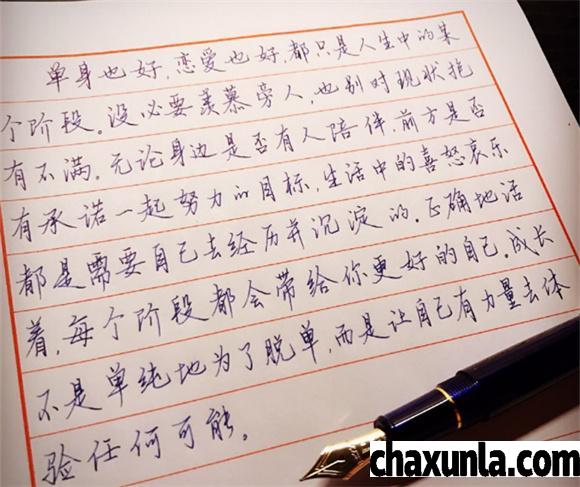 单身也好，恋爱也好，都只是人生中的某
个阶段。没必要羡慕旁人，也别对现状抱
有不满。无论身边是否有人陪伴，前方是否
有承诺一起努力的目标，生活中的喜怒哀乐
都是需要自己去经历并沉淀的。正确地活
着，每个阶段都会带给你更好的自己。成长
不是单纯地为了脱单，而是让自己有力量去体
验任何可能。
chaxunla.com